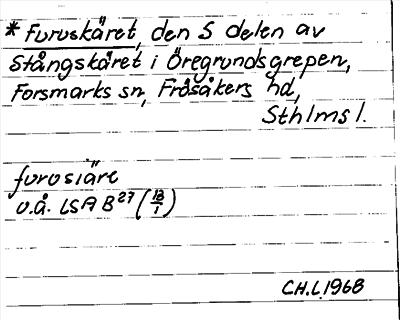 * Furuskäret, den S delen av
Stångskäret i Öregrundsgrepen,
Forsmarks sn, Frösåkers hd,
Sthlms l.
furusiäre
u.å. LSA B²⁷ (18/1)
C.H.L. 1968